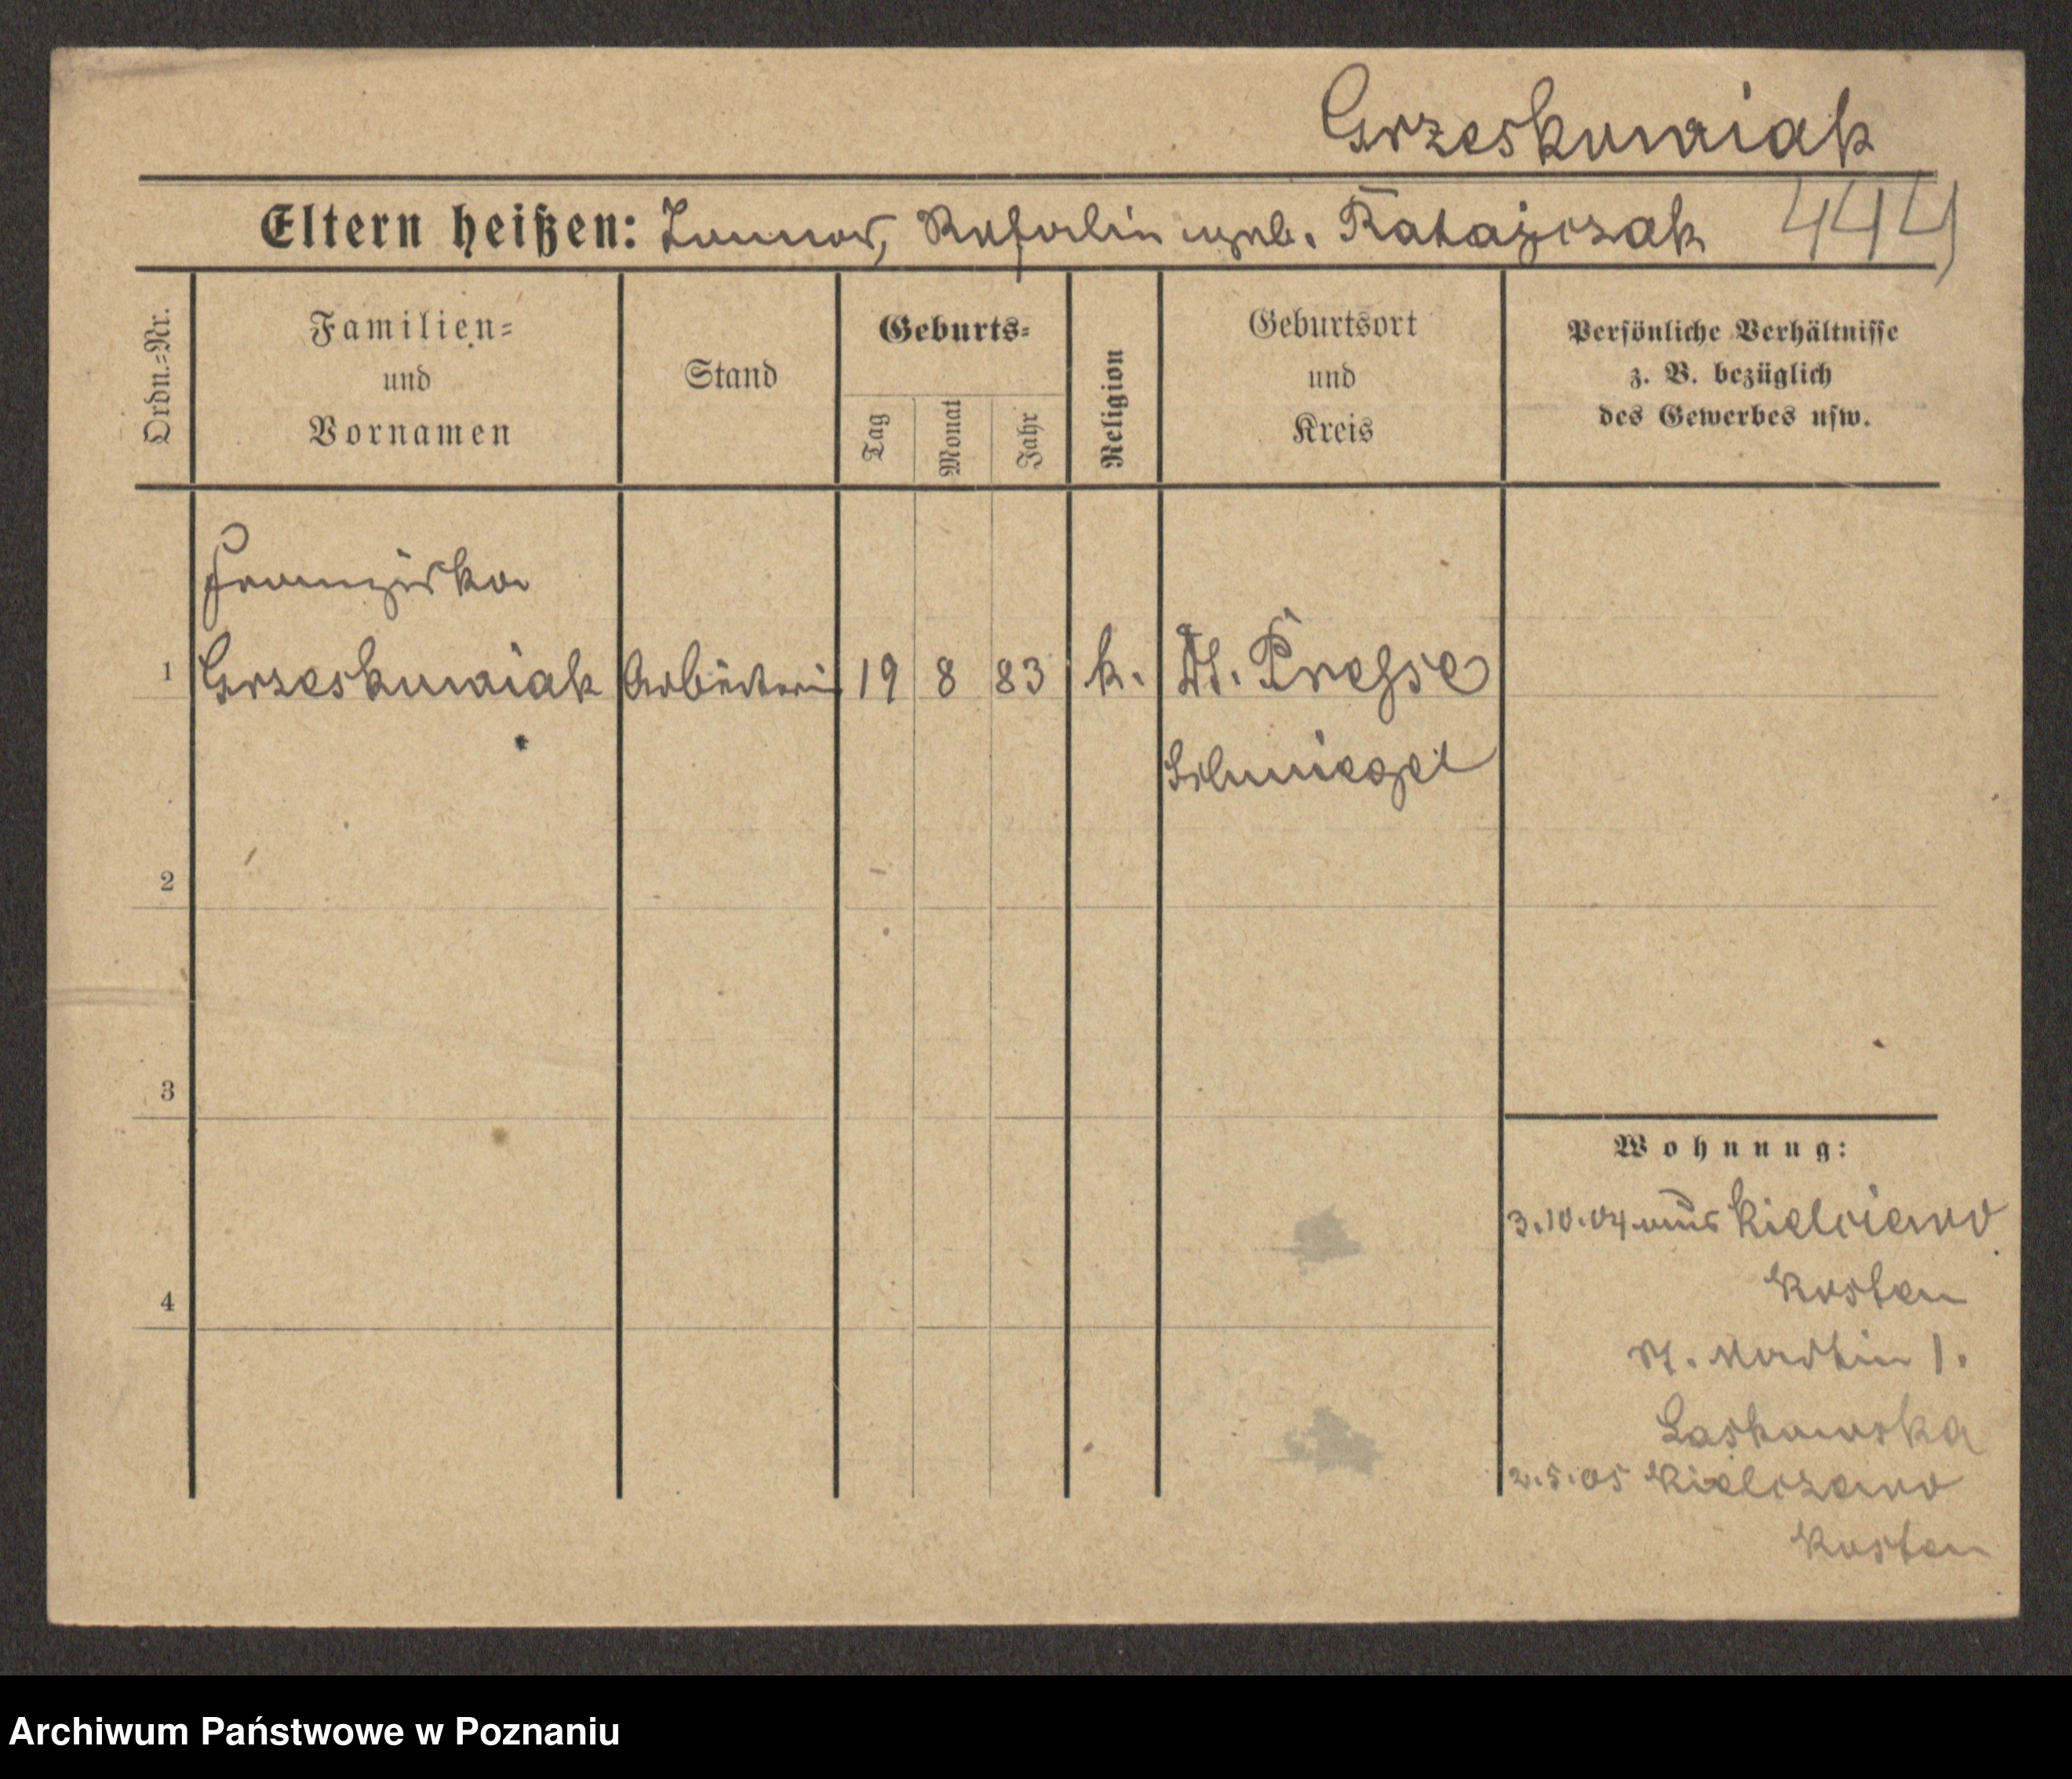 Grzeskowiak
Eltern heißen: Rosalie geb. Ratajczak 444
Ordn.-Nr.
Familien-
und
Vornamen
Stand
Geburts-
Tag
Monat
Jahr
Religion
Geburtsort
und
Kreis
Persönliche Verhältnisse
z. B. bezüglich
des Gewerbes usw.
Franziska
1 Grzeskowiak Arbeiterin 19 8 83 k. Dt. Presse
Schmiegel
2
3
4
Wohnung:
3.10.04 aus Kielciewo
Kosten
St. Martin 1.
Laskowska
2.5.05 Kielczewo
Kosten
Archiwum Państwowe w Poznaniu